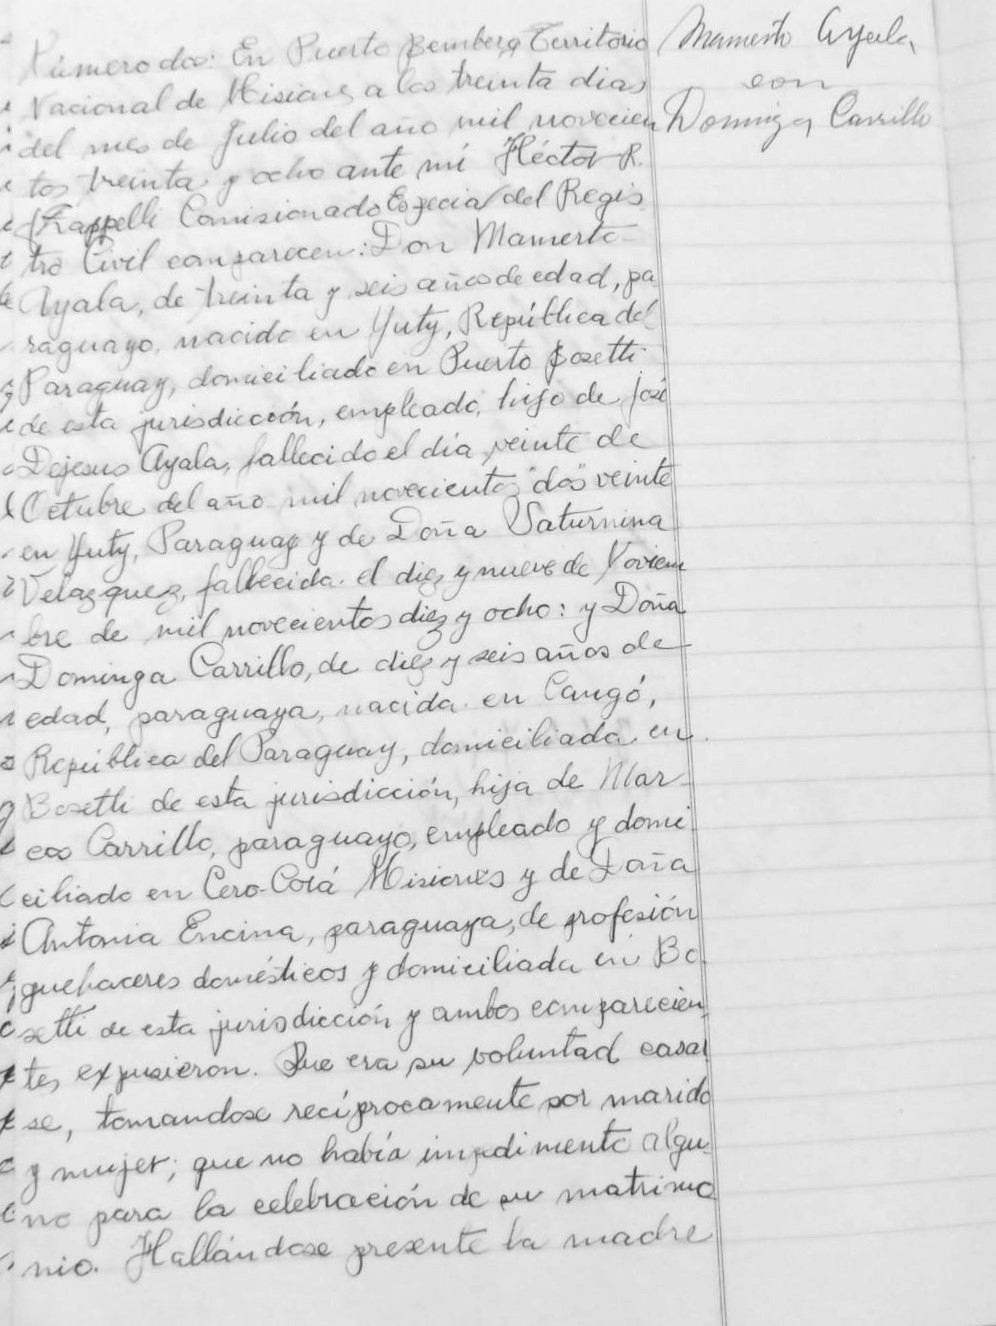 Número dos: En Puerto Bemberg, Territorio
Nacional de Misiones a los treinta dias
del mes de Julio del año mil novecien
tos treinta y ocho ante mí Héctor R.
Frappelli Comisionado Especial del Regis
tro Civil comparecen: Don Mamerto
Ayala, de treinta y seis años de edad, pa
raguayo, nacido en Yuty, República del
Paraguay, domiciliado en Puerto Bosetti
de esta jurisdicción, empleado, hijo de José
Dejesus Ayala, fallecido el día veinte de
Octubre del año mil novecientos "dos" veinte
en Yuty, Paraguay y de Doña Saturnina
Velazquez, fallecida el diez y nueve de Noviem
bre de mil novecientos diez y ocho: y Doña
Dominga Carrillo, de diez y seis años de
edad, paraguaya, nacida en Cangó,
República del Paraguay, domiciliada en
Bosetti de esta jurisdicción, hija de Mar
cos Carrillo, paraguayo, empleado y domi
ciliado en Cero-Corá Misiones y de Doña
Antonia Encina, paraguaya, de profesión
quehaceres domésticos y domiciliada en Bo
setti de esta jurisdicción y ambos comparecien
tes expusieron. Que era su voluntad casar
se, tomandose recíprocamente por marido
y mujer; que no había impedimento algu
no para la celebración de su matrimo
nio. Hallándose presente la madre
Mamerto Ayala,
con
Dominga Carrillo